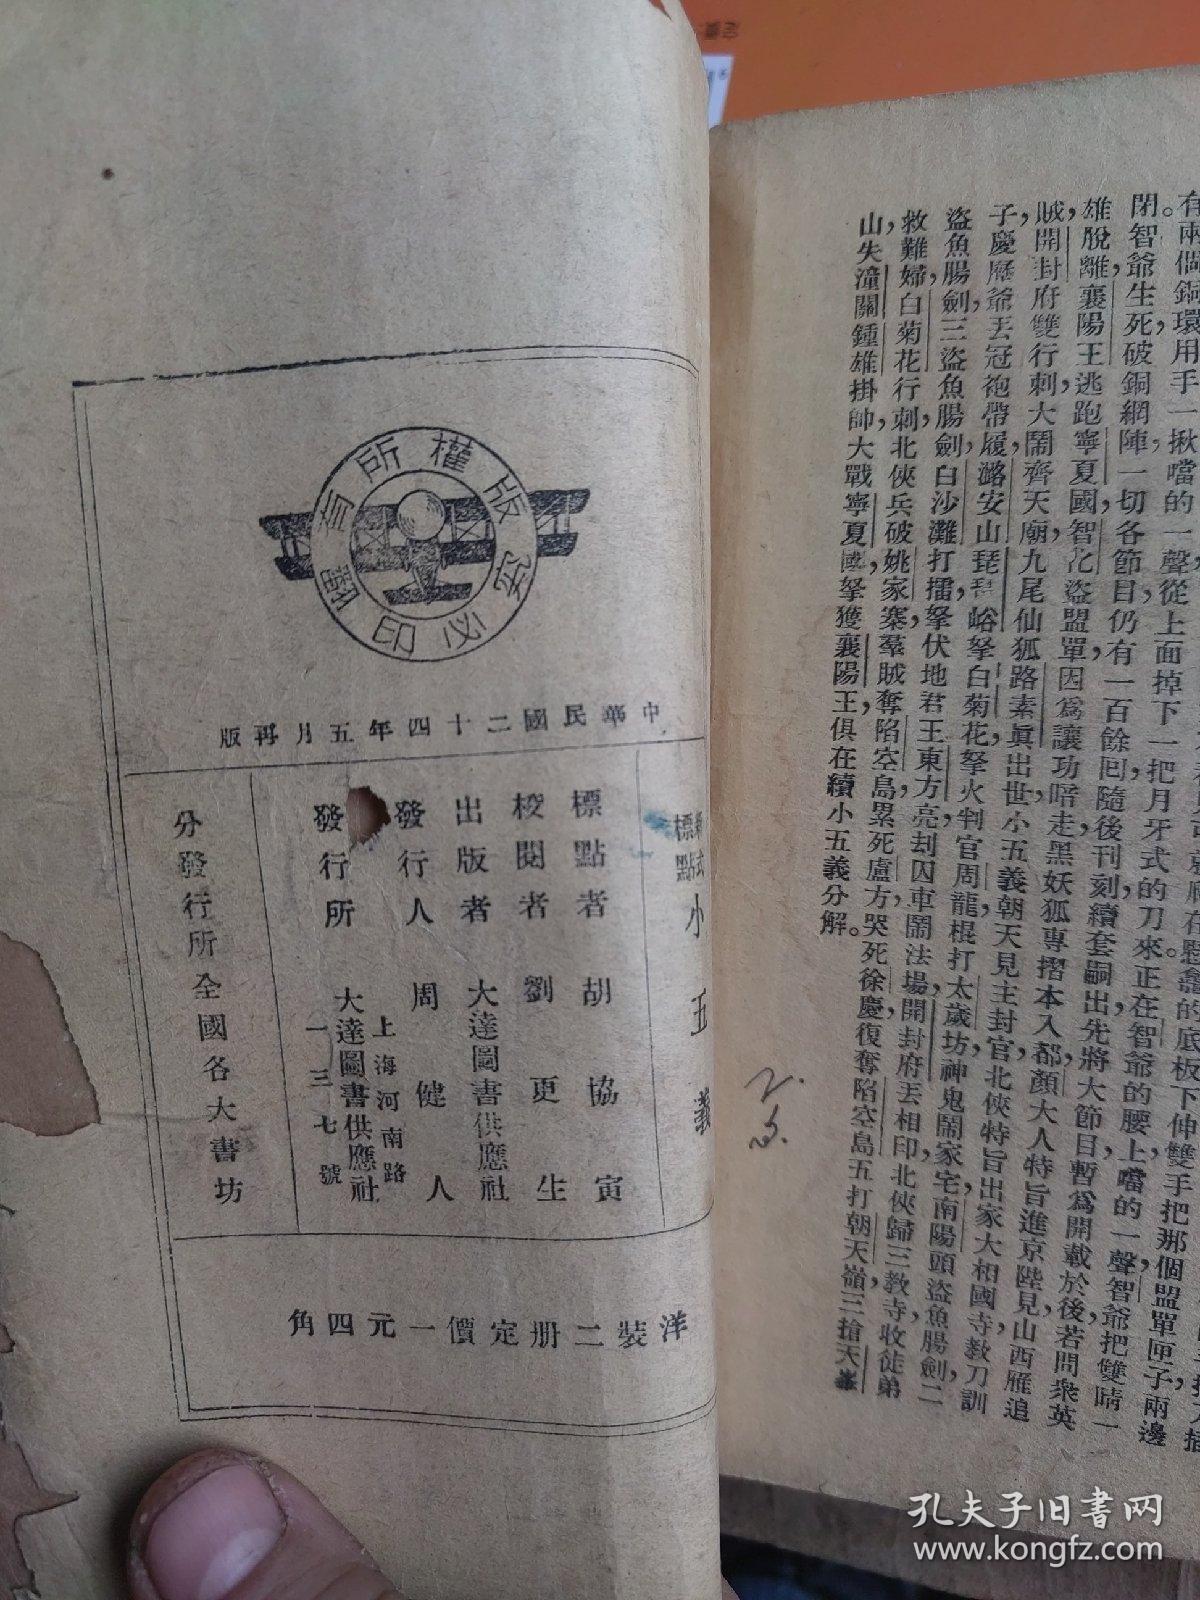 有兩個銅環用手一揪噹的一聲從上面掉下一把月牙式的刀來正在智爺的腰上噹的一聲智爺把雙睛一
閉。智爺生死破銅網陣一切各節目仍有一百餘回隨後刊刻續套嗣出先將大節目暫爲開載於後若問衆英
雄脫離襄陽王逃跑寧夏國智化盜盟單因爲讓功暗走黑妖狐專摺本入都顏大人特旨進京陛見山西雁追
賊,開封府雙行刺大鬧齊天廟九尾仙狐路素眞出世小五義朝天見主封官北俠特旨出家大相國寺教刀訓
子,慶歷爺丟冠袍帶履潞安山琵琶峪拏白菊花拏火判官周龍棍打太歲坊神鬼鬧家宅南陽頭盜魚腸劍二
盜魚腸劍三盜魚腸劍白沙灘打擂拏伏地君王東方亮刦囚車鬧法場開封府丟相印北俠歸三教寺收徒弟
救難婦白菊花行刺北俠兵破姚家寨羣賊奪陷空島累死盧方哭死徐慶復奪陷空島五打朝天嶺三搶天峯
山失潼關鍾雄掛帥大戰寧夏國拏獲襄陽王俱在續小五義分解。
版權所有
翻印必究
中華民國二十四年五月再版
標點 小五義
標點者 胡協寅
校閱者 劉更生
出版者 大達圖書供應社
發行人 周健人
發行所 大達圖書供應社
上海河南路
一三七號
分發行所全國各大書坊
洋裝二册定價一元四角
孔夫子旧书网
www.kongfz.com